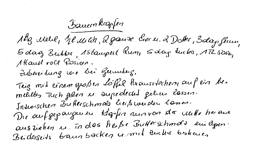 Bauernkrapfen
1kg Mehl, 1/2l Milch, 2 ganze Eier u. 2 Dotter, 3 dag Germ,
5 dag Butter, 1 Stamperl Rum, 5 dag Zucker, 1 TL Salz,
1 Hand voll Rosinen.
Zubereitung wie bei Germteig.
Teig mit einem großen Löffel herausstechen auf ein be-
mehltes Tuch geben u. zugedeckt gehen lassen.
Inzwischen Butterschmalz heiß werden lassen.
Die aufgegangenen Krapfen nun von der Mitte heraus
ausziehen u. in das heiße Butterschmalz einlegen.
Beidseits braun backen u. mit Zucker bestreuen.